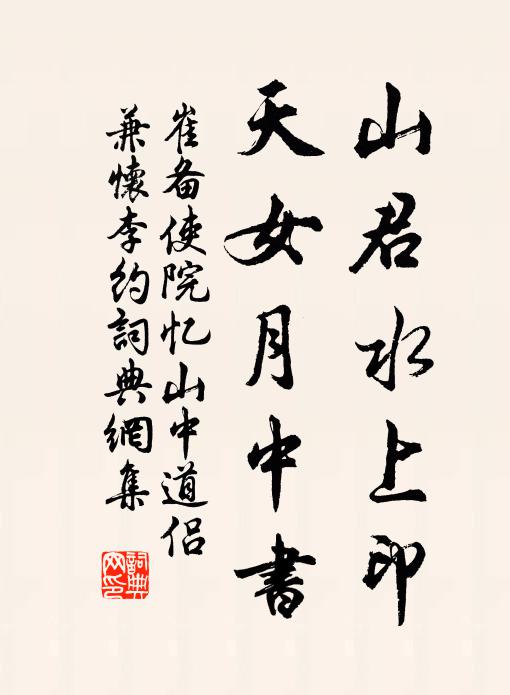 山君水上印
天女月中書
崔备使院忆山中道侣
兼懷李約詞典網集
詞典网印